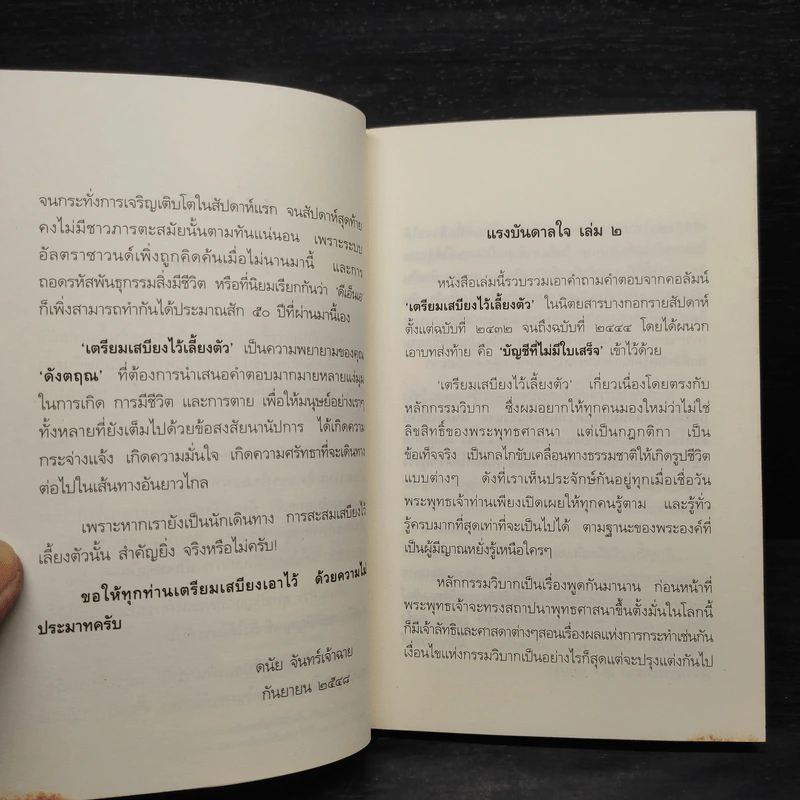 จนกระทั่งการเจริญเติบโตในสัปดาห์แรก จนสัปดาห์สุดท้าย
คงไม่มีชาวภารตะสมัยนั้นตามทันแน่นอน เพราะระบบ
อัลตราซาวนด์เพิ่งถูกคิดค้นเมื่อไม่นานมานี้ และการ
ถอดรหัสพันธุกรรมสิ่งมีชีวิต หรือที่นิยมเรียกกันว่า 'ดีเอ็นเอ'
ก็เพิ่งสามารถทำกันได้ประมาณสัก ๕๐ ปีที่ผ่านมานี้เอง
'เตรียมเสบียงไว้เลี้ยงตัว' เป็นความพยายามของคุณ
'ดังตฤณ' ที่ต้องการนำเสนอคำตอบมากมายหลายแง่มุม
ในการเกิด การมีชีวิต และการตาย เพื่อให้มนุษย์อย่างเราๆ
ทั้งหลายที่ยังเต็มไปด้วยข้อสงสัยนานัปการ ได้เกิดความ
กระจ่างแจ้ง เกิดความมั่นใจ เกิดความศรัทธาที่จะเดินทาง
ต่อไปในเส้นทางอันยาวไกล
เพราะหากเรายังเป็นนักเดินทาง การสะสมเสบียงไว้
เลี้ยงตัวนั้น สำคัญยิ่ง จริงหรือไม่ครับ!
ขอให้ทุกท่านเตรียมเสบียงเอาไว้ ด้วยความไม่
ประมาทครับ
ดนัย จันทร์เจ้าฉาย
กันยายน ๒๕๔๘
แรงบันดาลใจ เล่ม ๒
หนังสือเล่มนี้รวบรวมเอาคำถามคำตอบจากคอลัมน์
'เตรียมเสบียงไว้เลี้ยงตัว' ในนิตยสารบางกอกรายสัปดาห์
ตั้งแต่ฉบับที่ ๒๔๓๒ จนถึงฉบับที่ ๒๔๔๔ โดยได้ผนวก
เอาบทส่งท้าย คือ 'บัญชีที่ไม่มีใบเสร็จ' เข้าไว้ด้วย
'เตรียมเสบียงไว้เลี้ยงตัว' เกี่ยวเนื่องโดยตรงกับ
หลักกรรมวิบาก ซึ่งผมอยากให้ทุกคนมองใหม่ว่าไม่ใช่
ลิขสิทธิ์ของพระพุทธศาสนา แต่เป็นกฎกติกา เป็น
ข้อเท็จจริง เป็นกลไกขับเคลื่อนทางธรรมชาติให้เกิดรูปชีวิต
แบบต่างๆ ดังที่เราเห็นประจักษ์กันอยู่ทุกเมื่อเชื่อวัน
พระพุทธเจ้าท่านเพียงเปิดเผยให้ทุกคนรู้ตาม และรู้ทั่ว
รู้ครบมากที่สุดเท่าที่จะเป็นไปได้ ตามฐานะของพระองค์ที่
เป็นผู้มีญาณหยั่งรู้เหนือใครๆ
หลักกรรมวิบากเป็นเรื่องพูดกันมานาน ก่อนหน้าที่
พระพุทธเจ้าจะทรงสถาปนาพุทธศาสนาขึ้นตั้งมั่นในโลกนี้
ก็มีเจ้าลัทธิและศาสดาต่างๆสอนเรื่องผลแห่งการกระทำเช่นกัน
เงื่อนไขแห่งกรรมวิบากเป็นอย่างไรก็สุดแต่จะปรุงแต่งกันไป